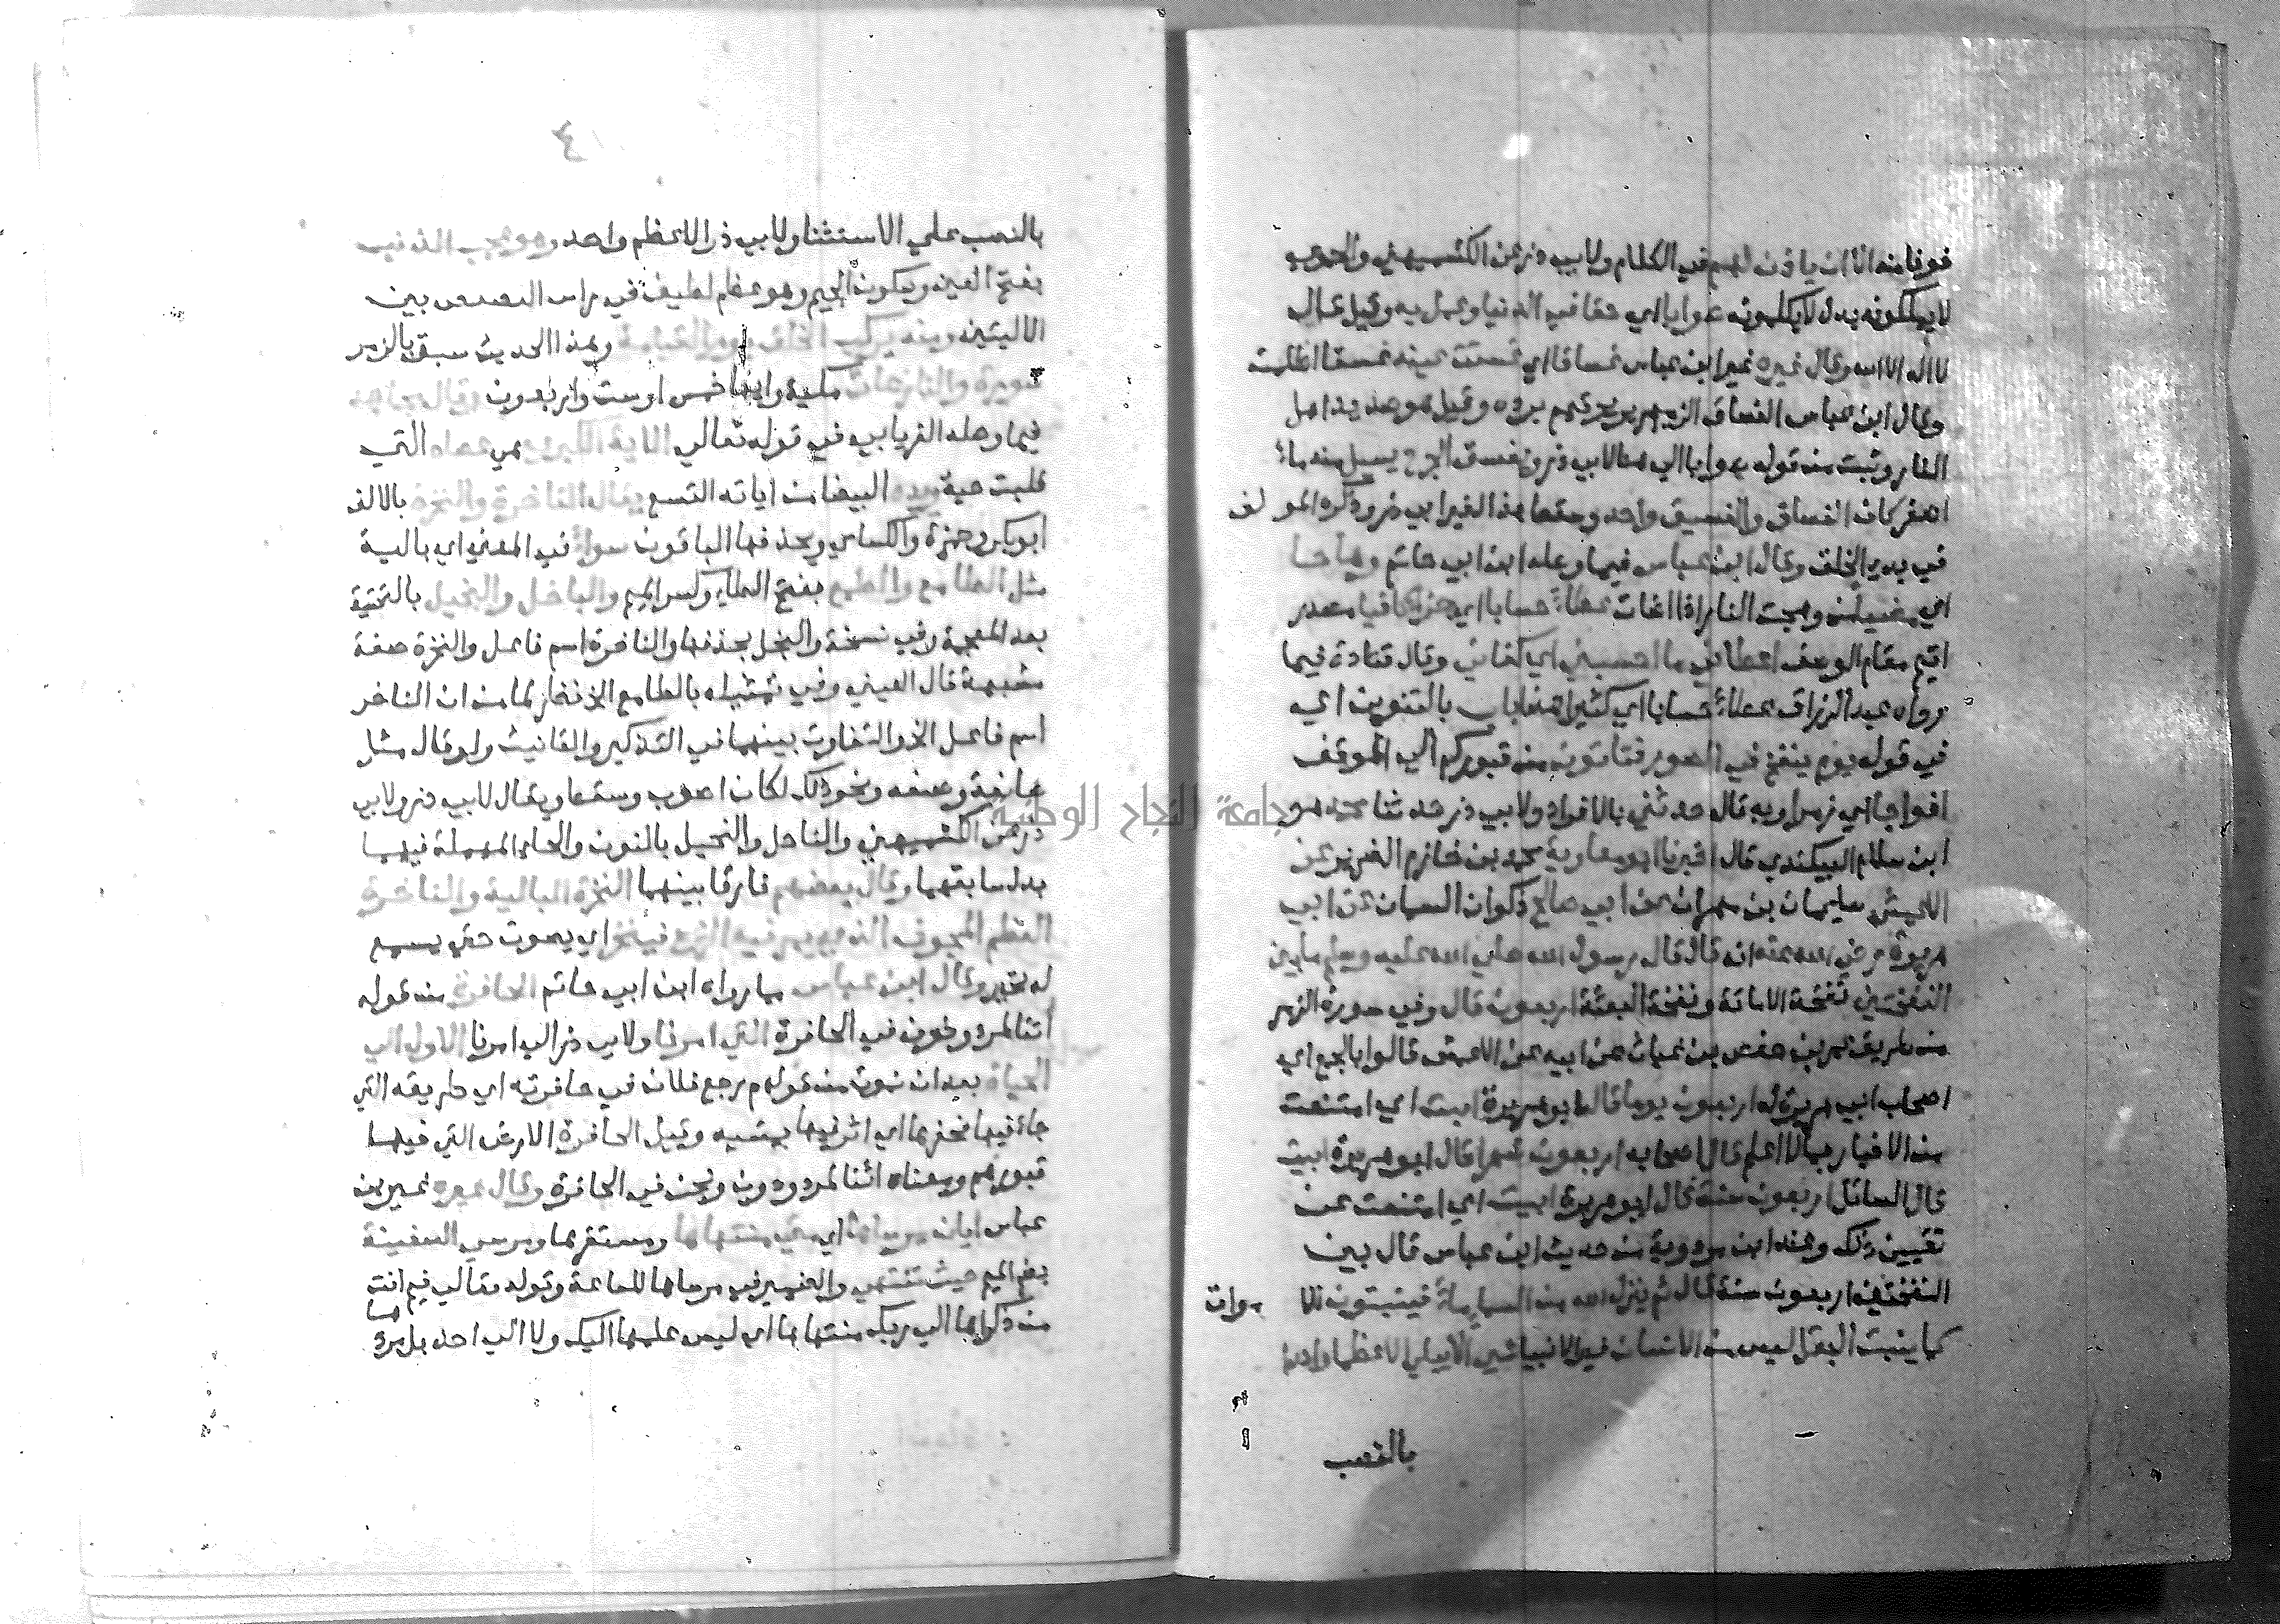 خوفا منه الا ان ياذن لهم في الكلام ولابي ذر عن الكشميهني والحموي
لا يملكونه بدل لا يكلمونه صوابا اي حقا في الدنيا وعمل به وقيل قال
لا اله الا الله وقال غيره غير ابن عباس غساقا اي غسقت عينه غسقا اظلمت
وقال ابن عباس الغساق الزمهرير يحرقهم برده وقيل هو صديد اهل
النار وثبت من قوله صوابا الي هنا لابي ذر ويغسق الجرح يسيل منه ماء
اصفر كان الغساق والغسيق واحد وسقط هذا لغير ابي ذر وذكره المولف
في بدء الخلق وقال ابن عباس فيما وصله ابن ابي حاتم وهاجا
اي مضيئا من وهجت النار اذا اضات عطاء حسابا اي جزاء كافيا مصدر
اقيم مقام الوصف اعطاني ما احسبني اي كفاني وقال قتادة فيما
رواه عبد الرزاق عطاء حسابا اي كثيرا باب بالتنوين اي
في قوله يوم ينفخ في الصور فتاتون من قبوركم الي الموقف
افواجا اي زمرا وبه قال حدثني بالافراد ولابي ذر حدثنا محمد هو
ابن سلام البيكندي قال اخبرنا ابو معاوية محمد بن خازم الضرير عن
الاعمش سليمان بن مهران عن ابي صالح ذكوان السمان عن ابي
هريرة رضي الله عنه انه قال قال رسول الله صلي الله عليه وسلم ما بين
النفختين نفخة الاماتة ونفخة البعثة اربعون قال وفي سورة الزمر
من طريق عمر بن حفص بن غياث عن ابيه عن الاعمش قالوا بالجمع اي
اصحاب ابي هريرة له اربعون يوما قال ابو هريرة ابيت اي امتنعت
من الاخبار بما لا اعلم قال اصحابه اربعون شهرا قال ابو هريرة ابيت
قال السائل اربعون سنة قال ابو هريرة ابيت اي امتنعت عن
تعيين ذلك وعند ابن مردوية من حديث ابن عباس قال بين
النفختين اربعون سنة قال ثم ينزل الله من السماء ماء فينبتون الاموات
كما ينبت البقل ليس من الانسان غير الانبيا شي الا يبلي الا عظما واحدا
بالنصب
٤
بالنصب علي الاستثنا ولابي ذر الا عظم واحد وهو عجب الذنب
بفتح العين وسكون الجيم وهو عظم لطيف في راس العصعص بين
الاليتين ومنه يركب الخلق يوم القيامة وهذا الحديث سبق بالزمر
سورة والنازعات مكية وايها خمس او ست واربعون وقال مجاهد
فيما وصله الفريابي في قوله تعالي الاية الكبري عصاه التي
قلبت حية ويده البيضا من اياته التسع يقال الناخرة والنخرة بالالف
ابو بكر وحمزة والكساي وبحذفها الباقون سواء في المعني اي بالية
مثل الطامع والطمع بفتح الطاء وكسر الميم والباخل والبخيل بالتحتية
بعد المعجمة وفي نسخة والبخل بحذفها والناخرة اسم فاعل والنخرة صفة
مشبهة قال العيني وفي تمثيله بالطامع الخ نظر لما من ان الناخر
اسم فاعل الخ والتفاوت بينهما في التذكير والتانيث ولو قال مثل
صانعة وصنعه ونحو ذلك لكان اصوب وسقط ويقال لابي ذر ولابي
ذر عن الكشميهني والناحل والنحيل بالنون والحاء المهملة فيهما
بدل سابقهما وقال بعضهم فارقا بينهما النخرة البالية والناخرة
العظم المجوف الذي يمر فيه الريح فينخر اي يصوت حتي يسمع
له نخير وقال ابن عباس مما رواه ابن ابي حاتم الحافرة من قوله
أئنا لمردودون في الحافرة التي امرنا ولابي ذر الي امرنا الاول الي
الحياة بعد ان نموت من قولهم رجع فلان في حافرته اي طريقه التي
جاء فيها فحفرها اي اثر فيها بمشيه وقيل الحافرة الارض التي فيها
قبورهم ومعناه ائنا لمردودون ونحن في الحافرة وقال غيره غير ابن
عباس ايان مرساها اي متي منتهاها ومستقرها ومرسي السفينة
بضم الميم حيث تنتهي والضمير في مرساها للساعة وقوله تعالي فيم انت
من ذكراها الي ربك منتهاها اي ليس علمها اليك ولا الي احد بل مردها